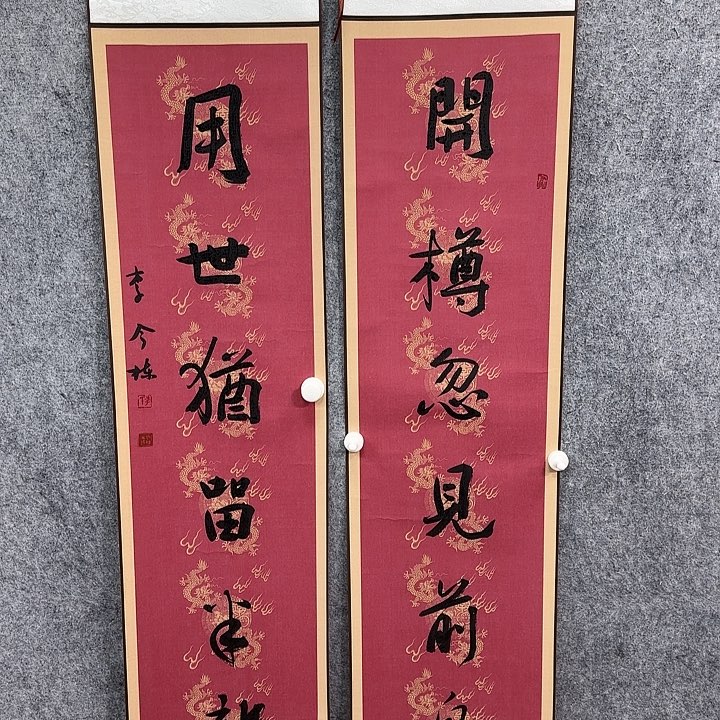 開樽忽見前
用世猶留半
李今棟